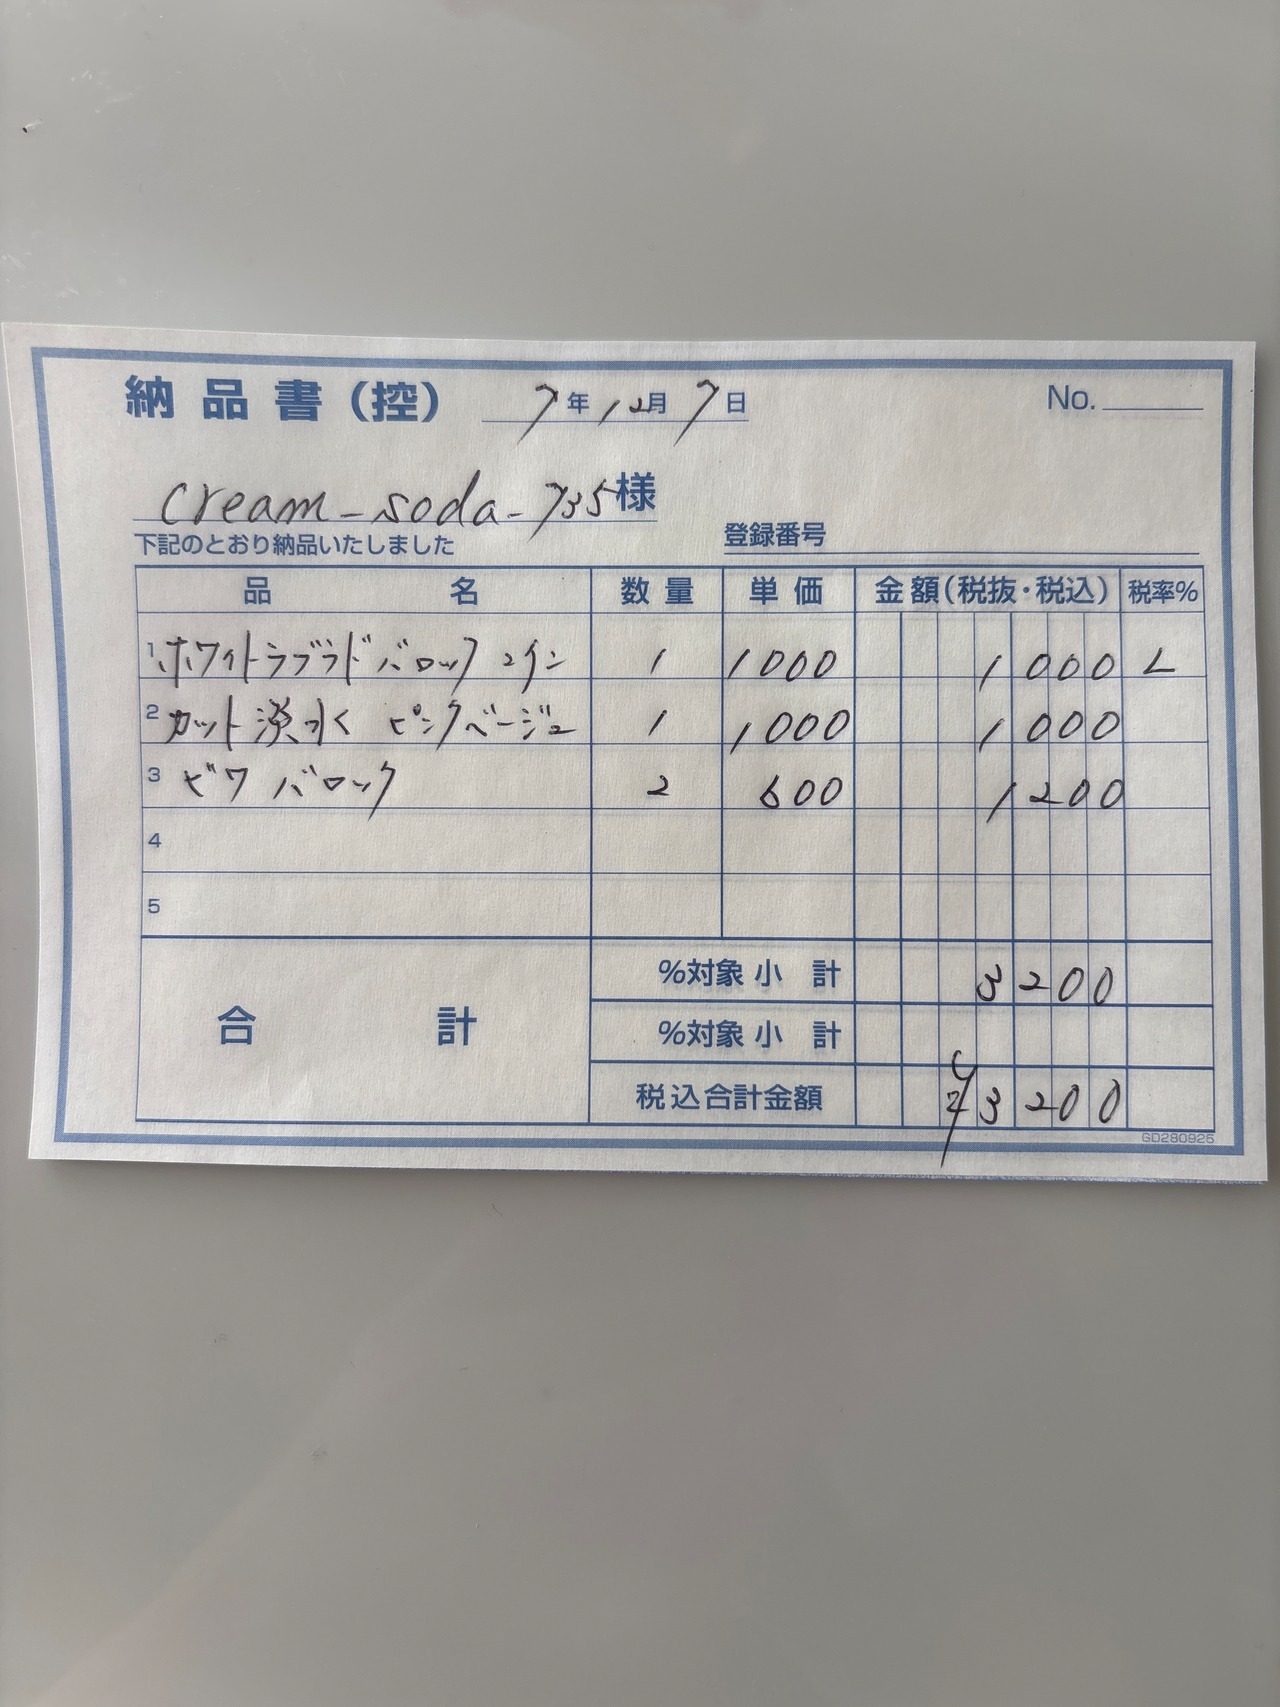 納品書(控) 7年12月7日 No.
cream-soda-735様
下記のとおり納品いたしました 登録番号
品名 数量 単価 金額(税抜・税込) 税率%
1 ホワイトラブラドバロック コイン 1 1000 1000 L
2 カット淡水 ピンクベージュ 1 1000 1000
3 ビワ バロック 2 600 1200
4
5
合計
%対象小計 3200
%対象小計
税込合計金額 ¥3200
GD280925